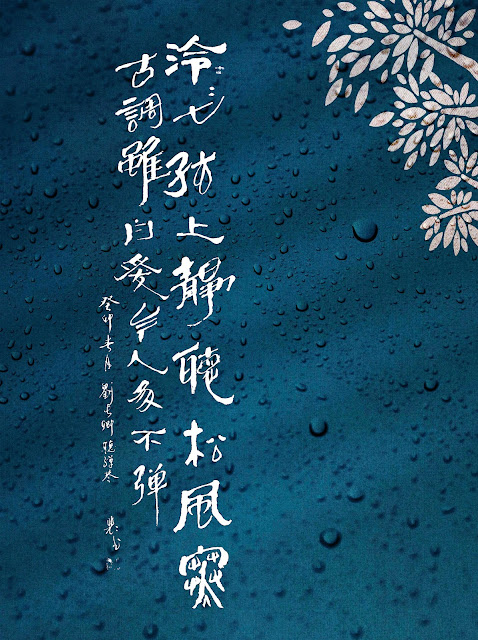 泠々七絃上靜聽松風寒
古調雖自愛今人多不弹
癸卯春月 劉長卿 聽彈琴 書